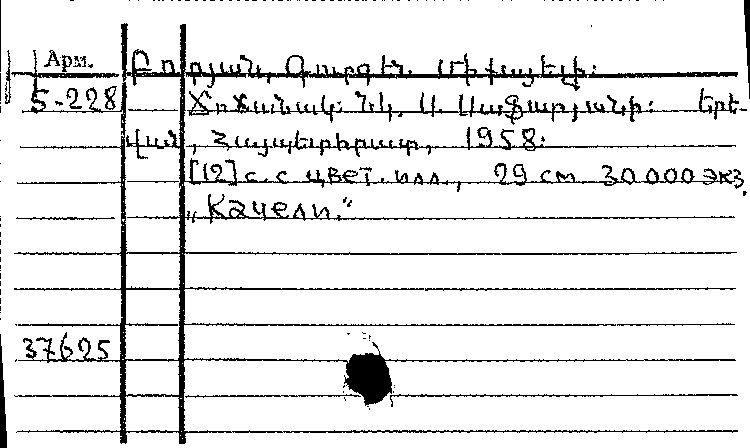 Арм. Բորյան, Գուրգեն Միքայելի:
5-228 Ճոճանակ: Նկ. Ա. Սաֆարյանի: Երե-
վան, Հայպետհրատ, 1958:
[12] с. с цвет. илл., 29 см 30.000 экз.
„Качели.“
37625